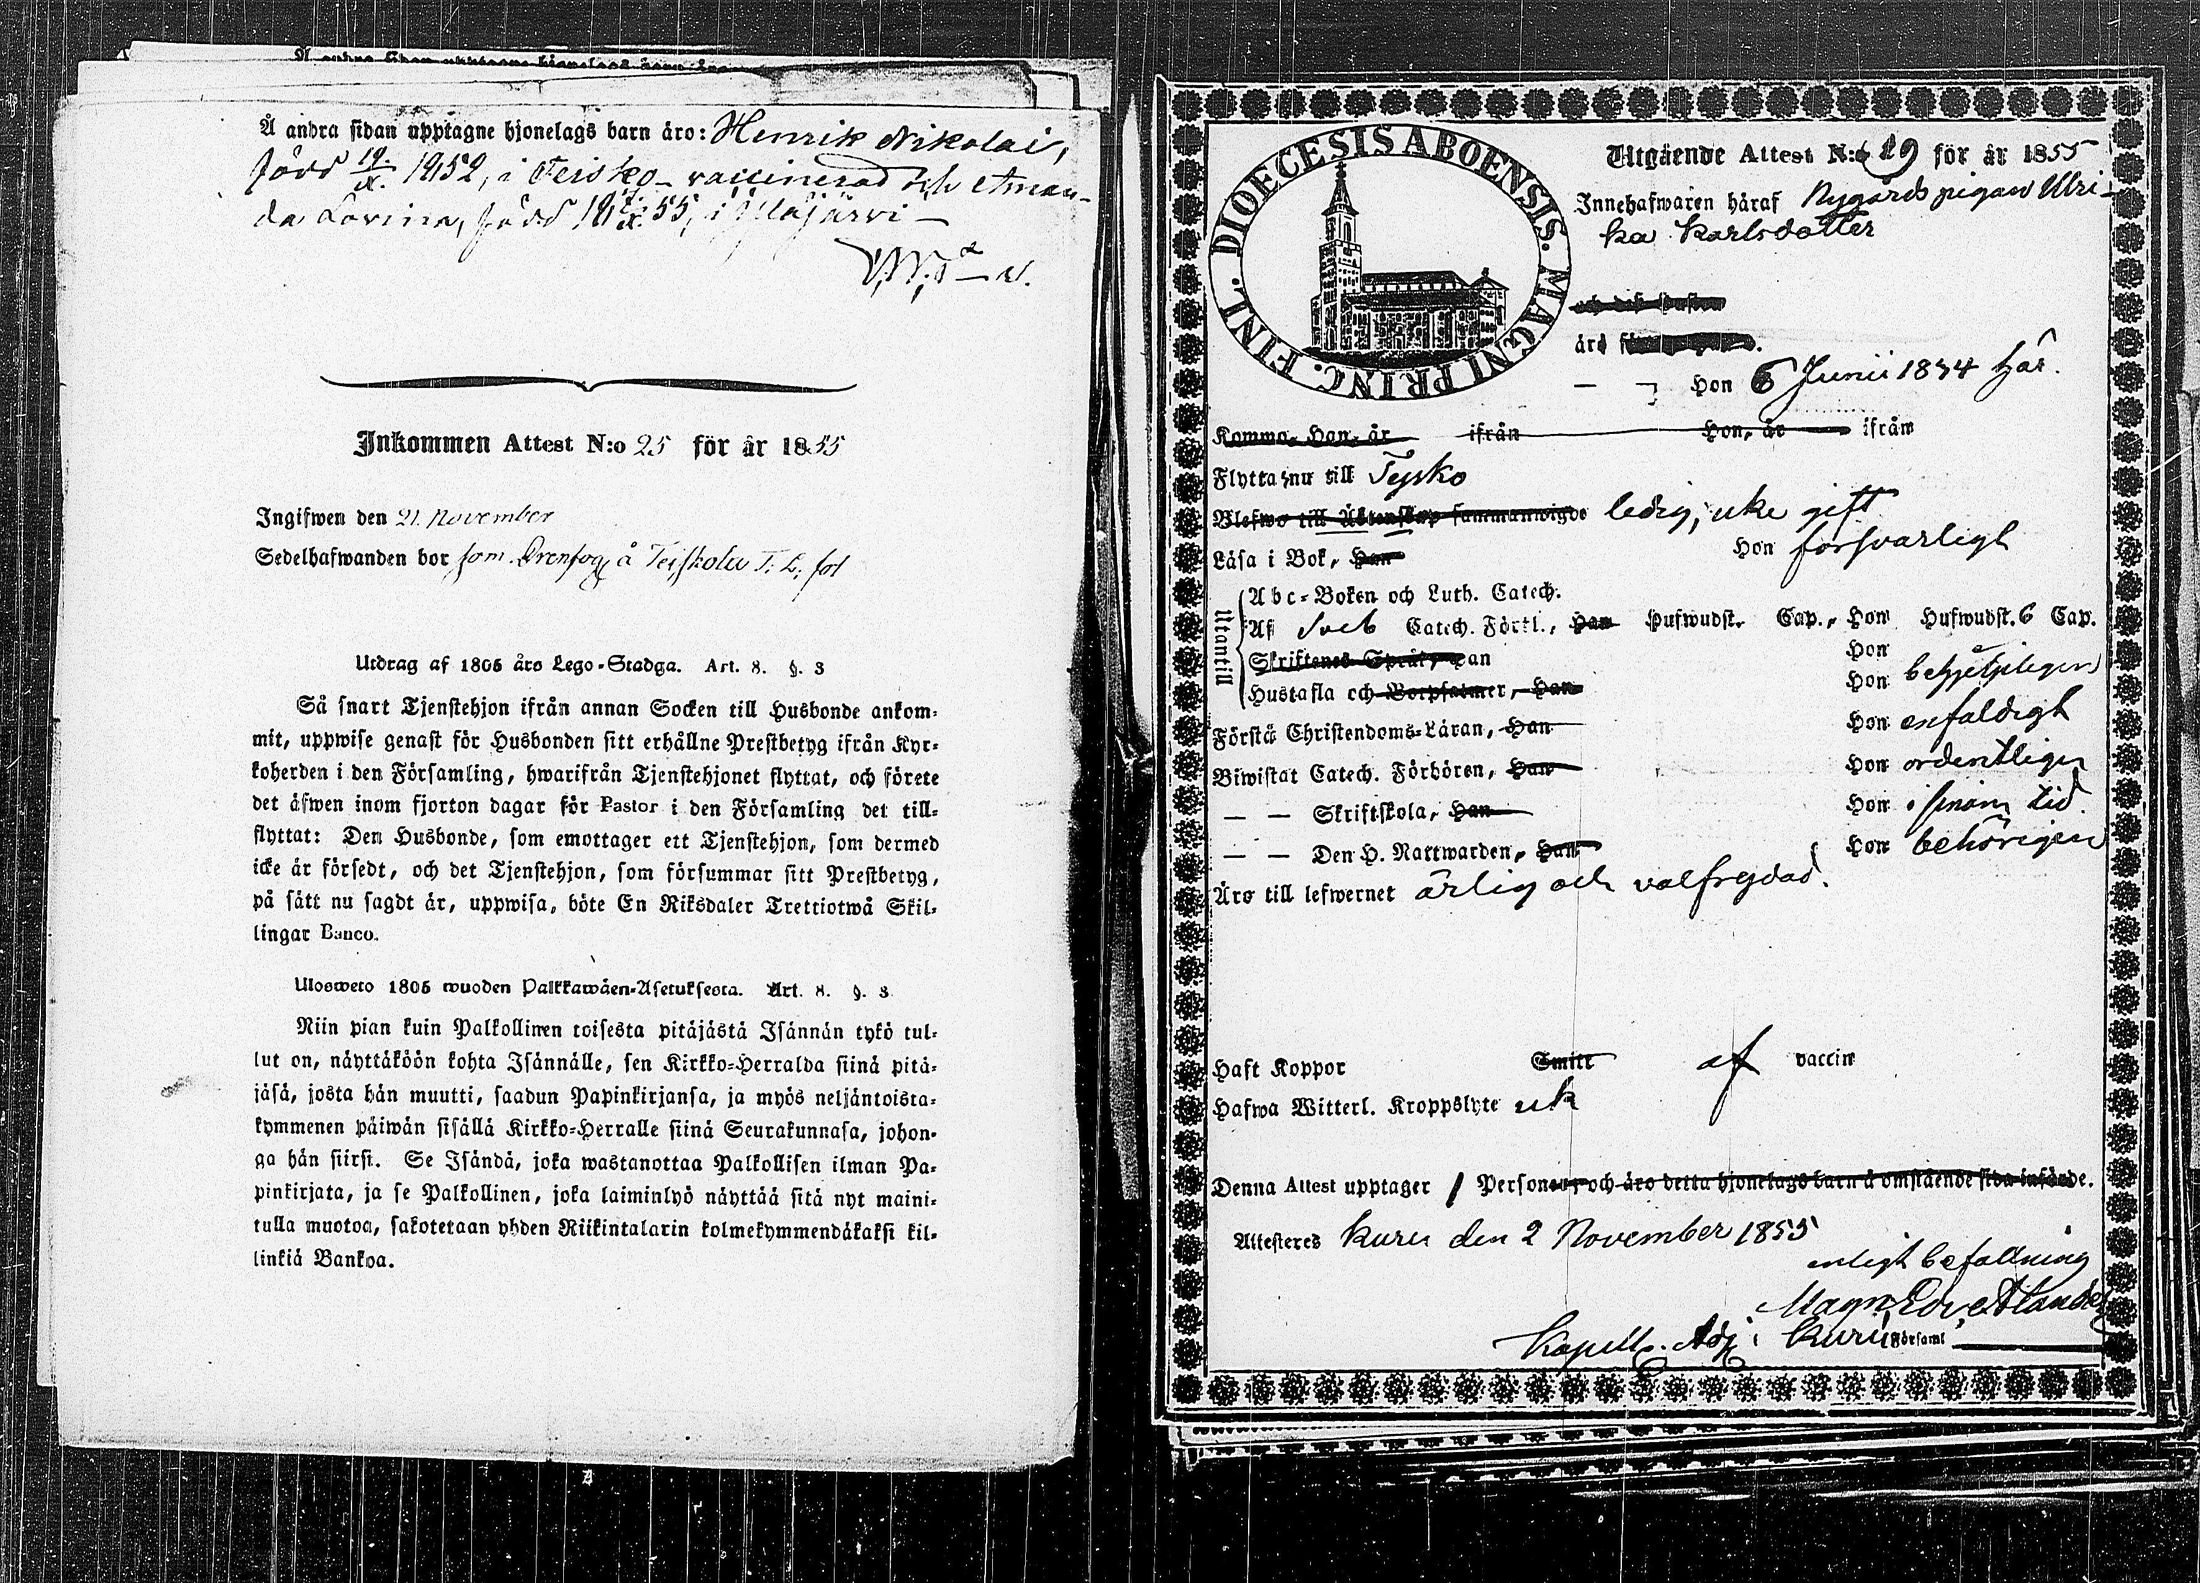 Å andra sidan upptagne hjonelags barn äro: Henrik Nikolai,
född 19/IX. 1852, i Teisko – vaccinerad och Aman-
da Lovina, född 18 55, i Ylöjärvi –
Inkommen Attest N:o 25 för år 1855
Ingifwen den 21. November
Sedelhafwanden bor som å Teiskola T. L. fol
Utdrag af 1805 års Lego-Stadga. Art. 8. §. 3
Så snart Tjenstehjon ifrån annan Socken till Husbonde ankom-
mit, uppwise genast för Husbonden sitt erhållne Prestbetyg ifrån Kyr-
koherden i den Församling, hwarifrån Tjenstehjonet flyttat, och förete
det äfwen inom fjorton dagar för Pastor i den Församling det till-
flyttat: Den Husbonde, som emottager ett Tjenstehjon, som dermed
icke är försedt, och det Tjenstehjon, som försummar sitt Prestbetyg,
på sätt nu sagdt är, uppwisa, böte En Riksdaler Trettiotwå Skil-
lingar Banco.
Ulosweto 1805 wuoden Palkkawäen-Asetuksesta. Art. 8. §. 3
Niin pian kuin Palkollinen toisesta pitäjästä Isännän tykö tul-
lut on, näyttäköön kohta Isännälle, sen Kirkko-Herralda siinä pitä-
jäsä, josta hän muutti, saadun Papinkirjansa, ja myös neljäntoista-
kymmenen päiwän sisällä Kirkko-Herralle siinä Seurakunnasa, johon-
ga hän siirsi. Se Isändä, joka wastanottaa Palkollisen ilman Pa-
pinkirjata, ja se Palkollinen, joka laiminlyö näyttää sitä nyt maini-
tulla muotoa, sakotetaan yhden Riikintalarin kolmekymmendäkaksi kil-
linkiä Bankoa.
DIOECESIS ABOENSIS. MAGNI PRINC. FINL.
Utgående Attest N:o 19 för år 1855
Innehafwaren häraf Nygårds pigan Ulri-
ka Karlsdotter
och dess hustru
äro
– – Hon 6 Junii 1834 här.
Komma, Han, är ifrån Hon, är ifrån
Flytta nu till Teysko
Blefwo till Äktenskap sammanwigde ledig, icke gift
Läsa i Bok, Han Hon försvarligt
Utantill
Abc-Boken och Luth. Catech.
Af Sveb Catech. Förkl., Han Hufwudst. Cap., Hon Hufwudst. 6 Cap.
Skriftenes Språk, Han Hon
Hustafla och Botpsalmer, Han Hon
Förstå Christendoms-Läran, Han Hon enfaldigt
Biwistat Catech. Förhören, Han Hon ordentligen
– – Skriftskola, Han Hon i sinom tid.
– – Den H. Nattwarden, Han Hon behörigen
Äro till lefwernet ärlig och välfrejdad.
Haft Koppor Smitt af vaccin
Hafwa Witterl. Kroppslyte ick
Denna Attest upptager 1 Personer, och äro detta hjonelags barn å omstående sida införde.
Attesteres Kuru den 2 November 1855
enligt befallning
Magn. Edv. Alander
Kapell. Adj. i Kuru Församl